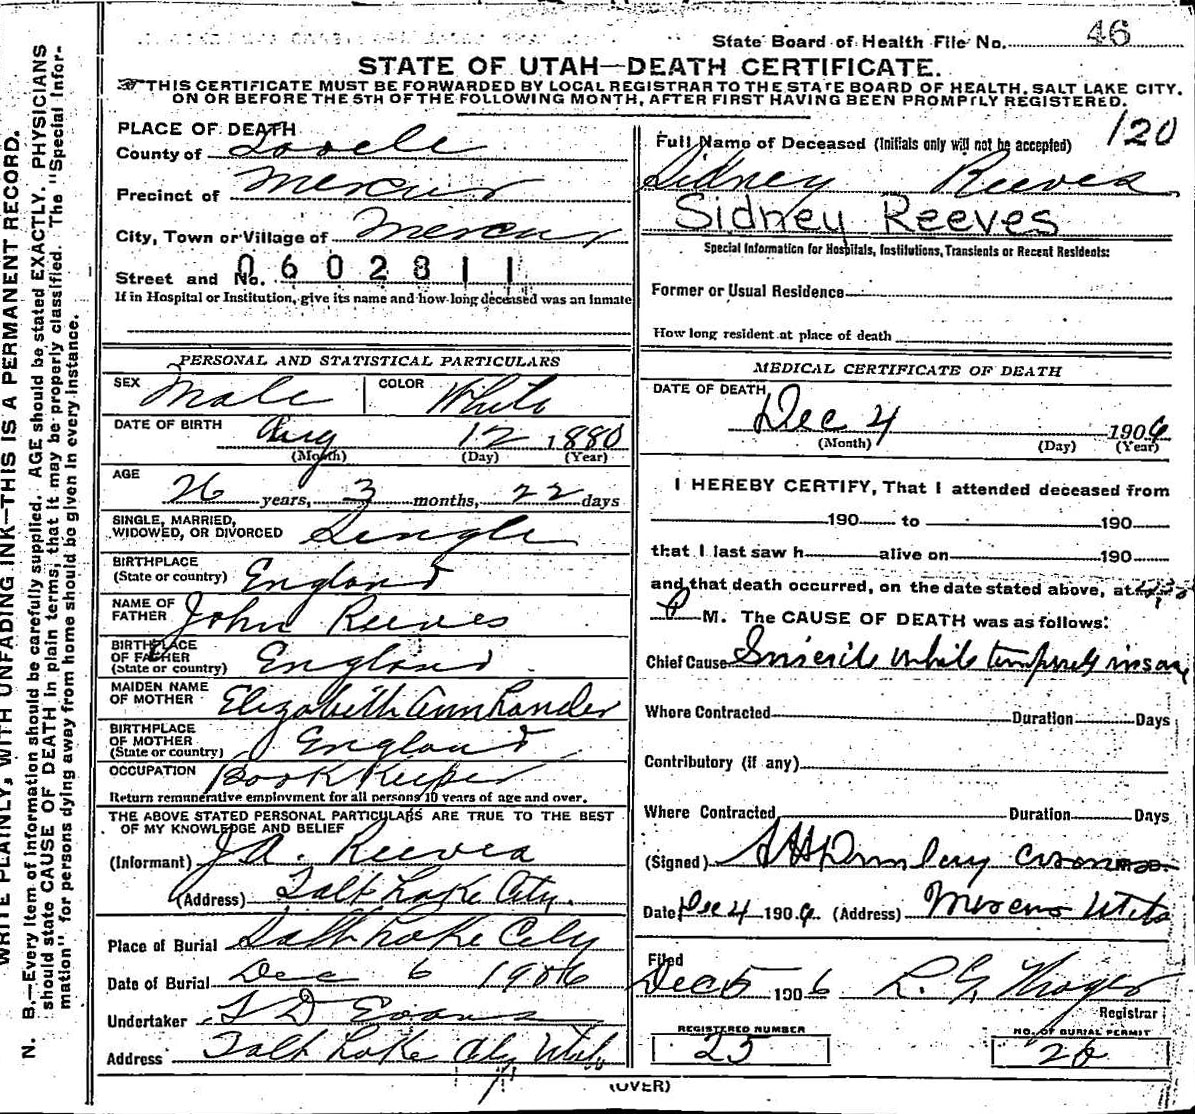 State Board of Health File No. 46
STATE OF UTAH—DEATH CERTIFICATE.
THIS CERTIFICATE MUST BE FORWARDED BY LOCAL REGISTRAR TO THE STATE BOARD OF HEALTH, SALT LAKE CITY.
ON OR BEFORE THE 5TH OF THE FOLLOWING MONTH, AFTER FIRST HAVING BEEN PROMPTLY REGISTERED.
WRITE PLAINLY, WITH UNFADING INK—THIS IS A PERMANENT RECORD.
N. B.—Every item of information should be carefully supplied. AGE should be stated EXACTLY. PHYSICIANS
should state CAUSE OF DEATH in plain terms, that it may be properly classified. The "Special Infor-
mation" for persons dying away from home should be given in every instance.
PLACE OF DEATH
County of Tooele
Precinct of Mercur
City, Town or Village of Mercur
Street and No. 0602811
If in Hospital or Institution, give its name and how long deceased was an inmate
PERSONAL AND STATISTICAL PARTICULARS
SEX Male COLOR White
DATE OF BIRTH Aug 12 1880
(Month) (Day) (Year)
AGE 26 years, 3 months, 22 days
SINGLE, MARRIED,
WIDOWED, OR DIVORCED Single
BIRTHPLACE
(State or country) England
NAME OF
FATHER John Reeves
BIRTHPLACE
OF FATHER
(State or country) England
MAIDEN NAME
OF MOTHER Elizabeth Ann Lander
BIRTHPLACE
OF MOTHER
(State or country) England
OCCUPATION Book Keeper
Return remunerative employment for all persons 10 years of age and over.
THE ABOVE STATED PERSONAL PARTICULARS ARE TRUE TO THE BEST
OF MY KNOWLEDGE AND BELIEF
(Informant) J A. Reeves
(Address) Salt Lake City.
Place of Burial Salt Lake City
Date of Burial Dec 6 1906
Undertaker S D Evans
Address Salt Lake City Utah
120
Full Name of Deceased (Initials only will not be accepted)
Sidney Reeves
Sidney Reeves
Special Information for Hospitals, Institutions, Transients or Recent Residents:
Former or Usual Residence
How long resident at place of death
MEDICAL CERTIFICATE OF DEATH
DATE OF DEATH
Dec 4 1906
(Month) (Day) (Year)
I HEREBY CERTIFY, That I attended deceased from
190 to 190
that I last saw h alive on 190
and that death occurred, on the date stated above, at
P M. The CAUSE OF DEATH was as follows:
Chief Cause Suicide while temporarily insane
Where Contracted Duration Days
Contributory (if any)
Where Contracted Duration Days
(Signed) Coroner
Date Dec 4 1906. (Address) Mercur Utah
Filed
Dec 5 1906 L. G.
Registrar
REGISTERED NUMBER
25
NO. OF BURIAL PERMIT
26
(OVER)